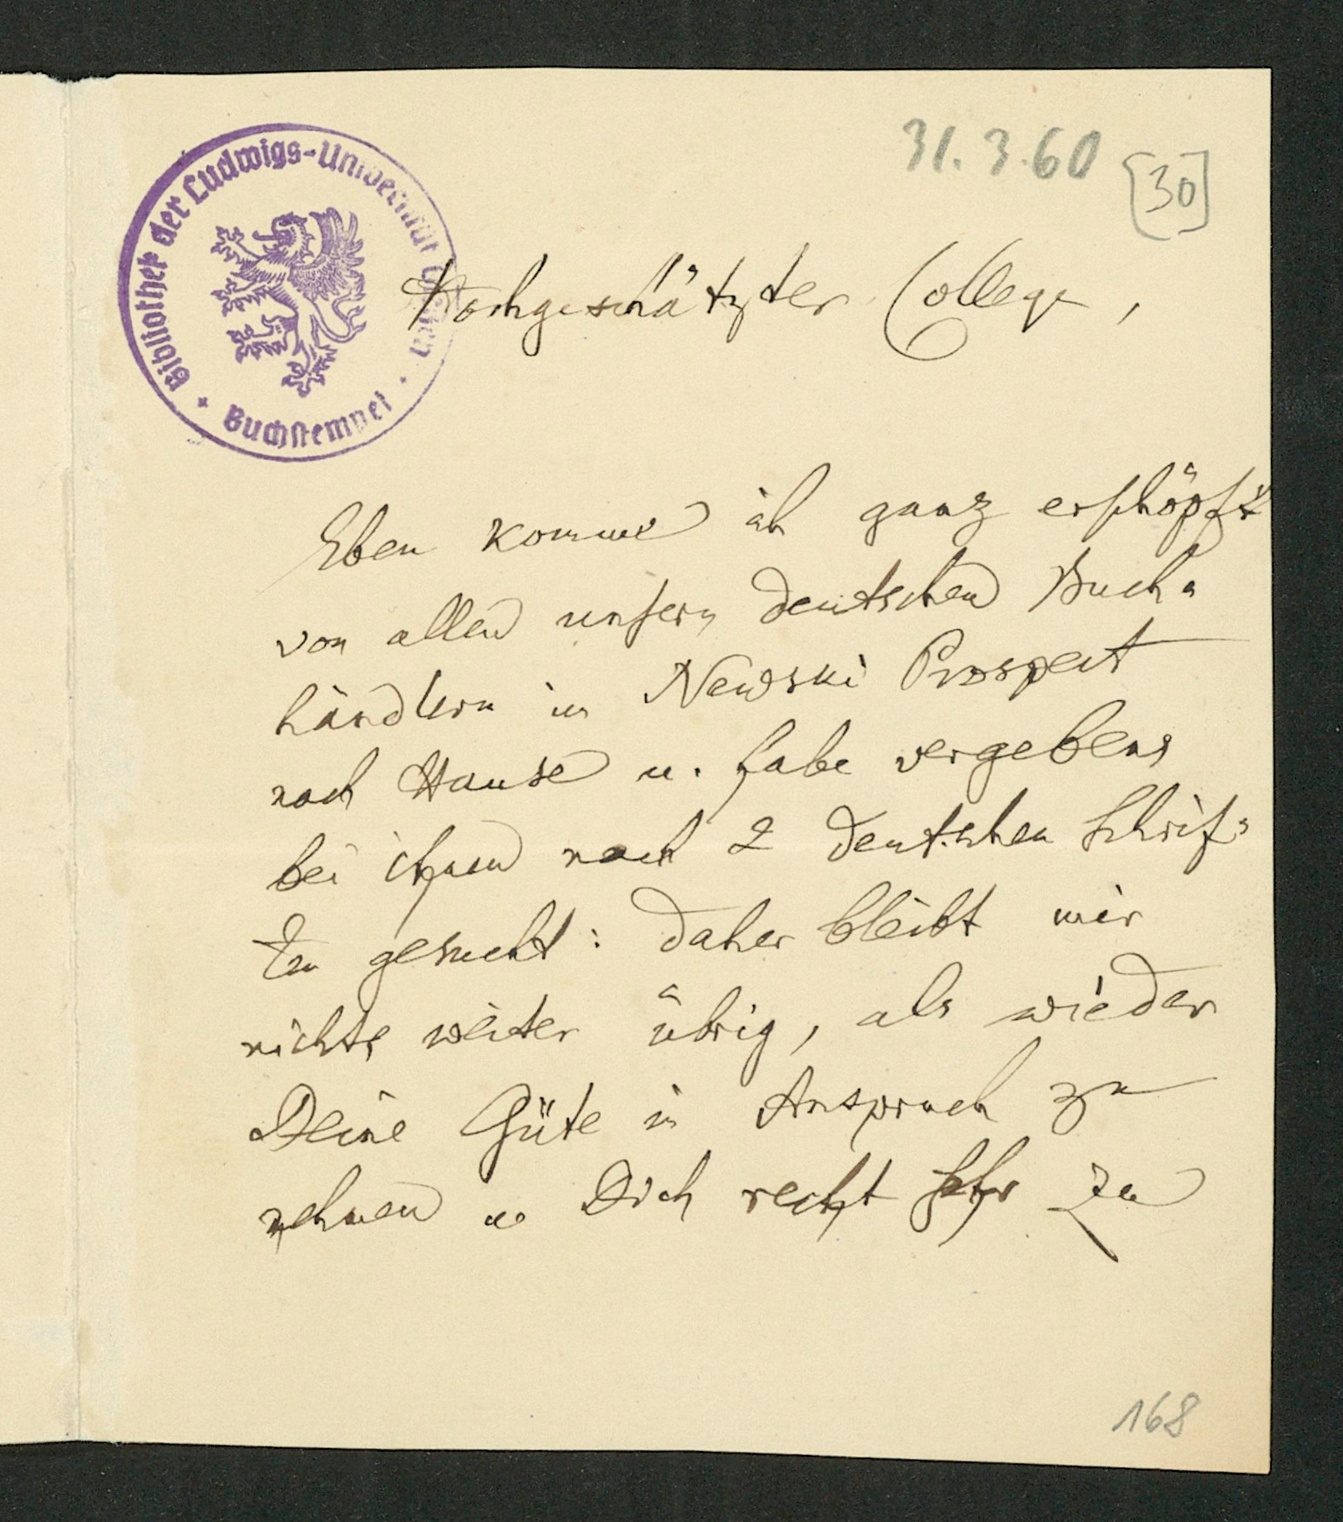 31.3.60
[30]
Bibliothek der Ludwigs-Universität Gießen
Buchstempel
Hochgeschätzter College,
Eben komme ich ganz erschöpft
von allen unsern deutschen Buch-
händlern im Newski Prospect
nach Hause u. habe vergebens
bei ihnen nach 2 deutschen Schrif-
ten gesucht: daher bleibt mir
nichts weiter übrig, als wieder
Deine Güte in Anspruch zu
nehmen u. Dich recht sehr zu
168